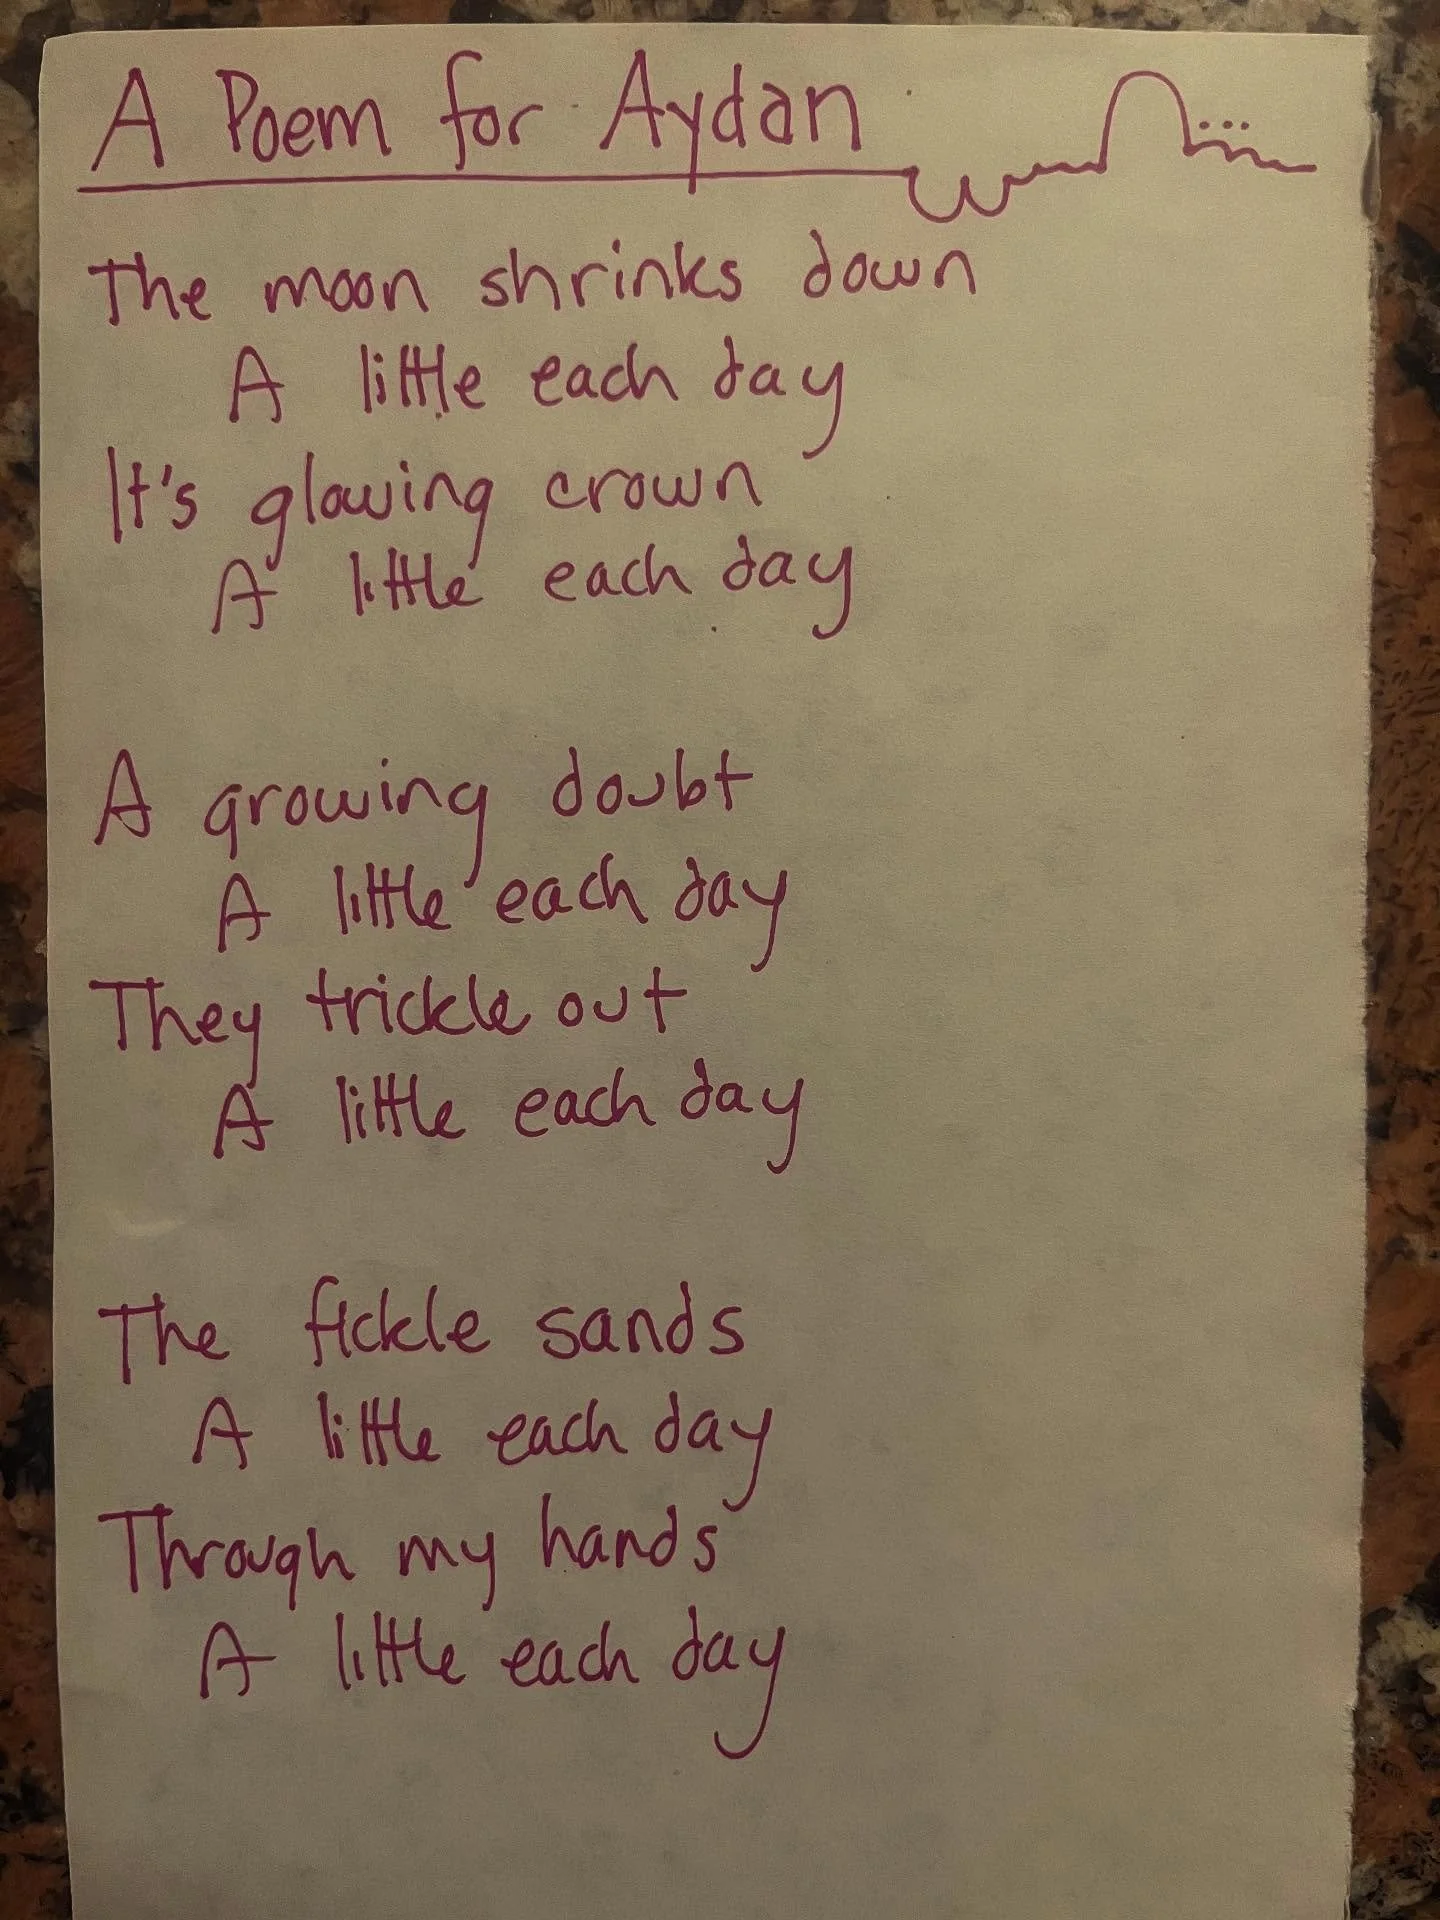 A Poem for Aydan
The moon shrinks down
A little each day
It's glowing crown
A little each day
A growing doubt
A little each day
They trickle out
A little each day
The fickle sands
A little each day
Through my hands
A little each day